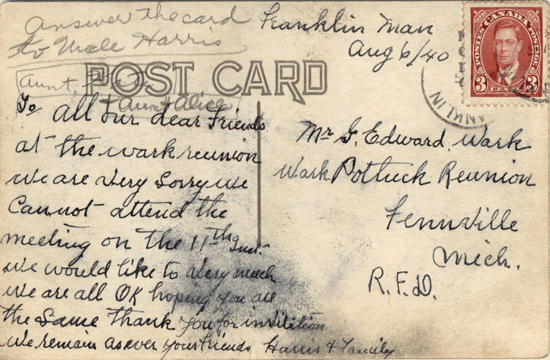 Answer the card
to Male Harris
Aunt
+ Aunt Alice
Franklin Man
Aug 6/40
POSTES CANADA POSTAGE
3 CENTS 3
NKLIN
POST CARD
To all our dear Friends
at the wark reunion
we are very sorry we
cannot attend the
meeting on the 11th Inst.
we would like to very much
we are all OK hoping you are
the same thank you for invitation
we remain as ever your friends Harris & Family
Mr G. Edward Wark
Wark Potluck Reunion
Fennville
Mich.
R.F.D.